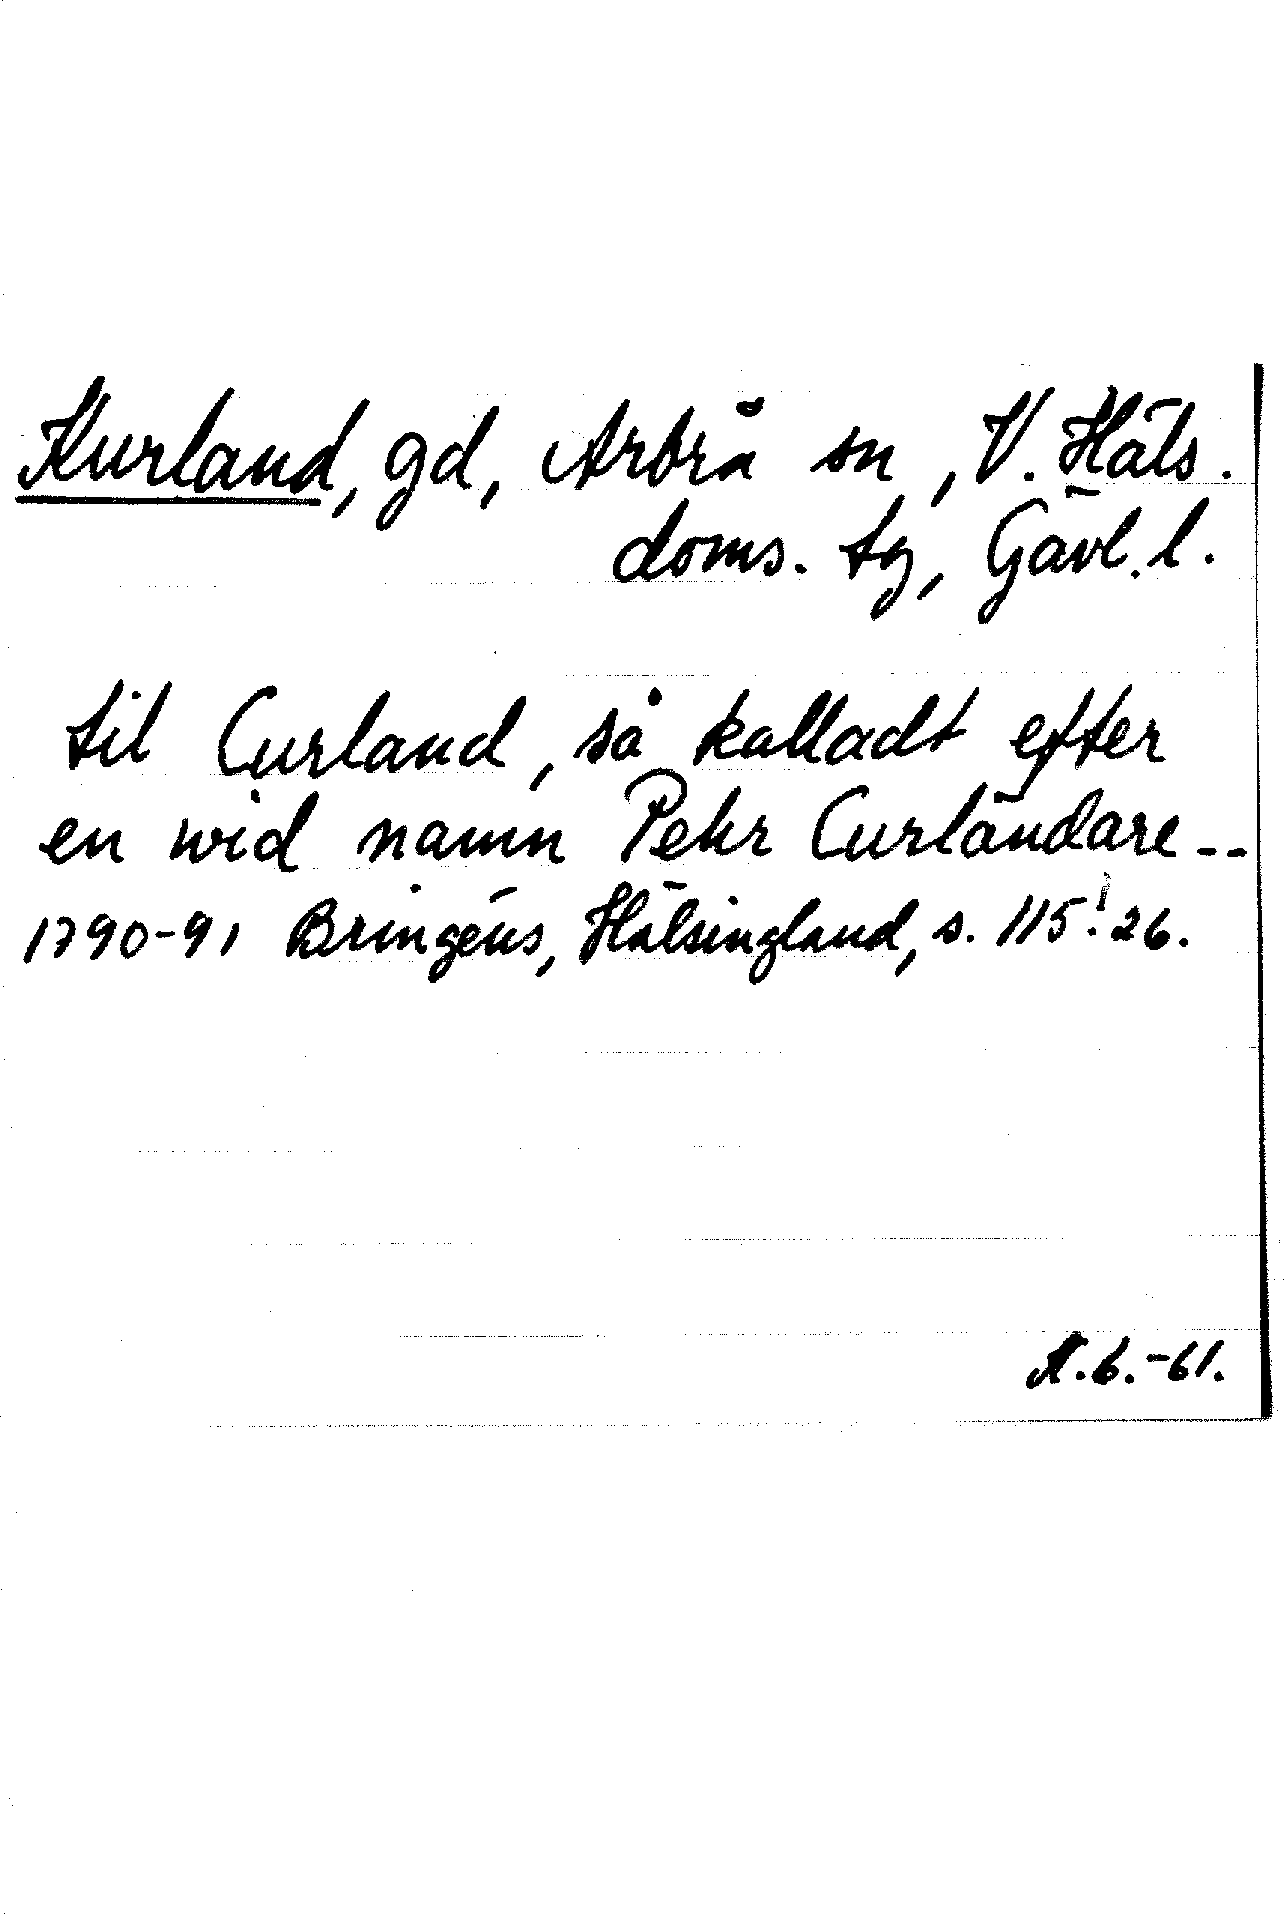 Kurland, gd, Arbrå sn, V. Häls.
doms. tg, Gävl. l.
til Curland, så kalladt efter
en wid namn Pehr Curländare --
1790-91 Bringéus, Hälsingland, s. 115: 26.
6.-61.